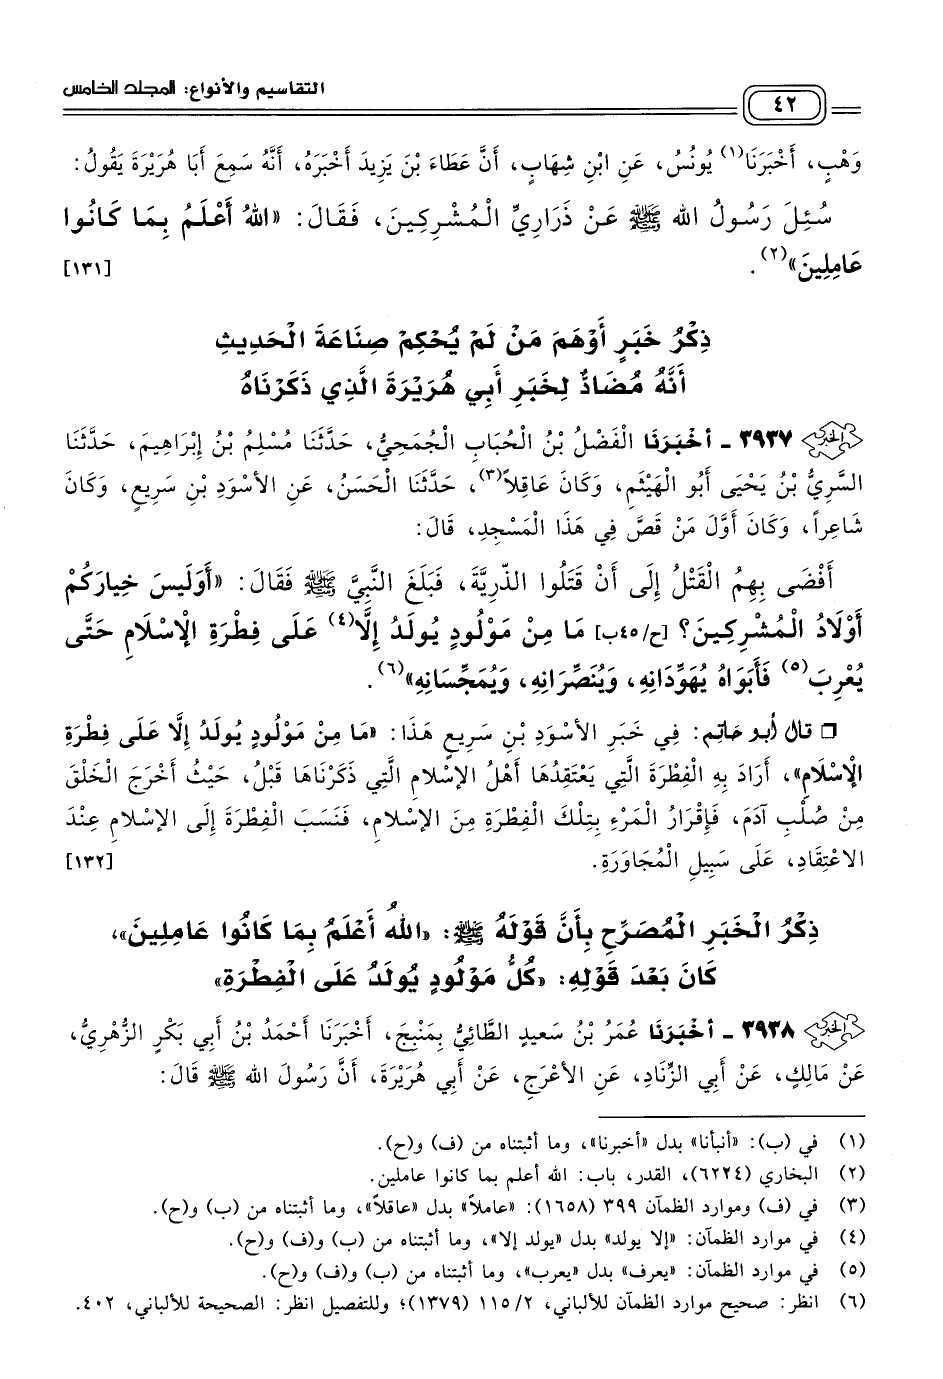 التقاسيم والأنواع: المجلد الخامس
٤٢
وَهْبٍ، أَخْبَرَنَا(١) يُونُسُ، عَنِ ابْنِ شِهَابٍ، أَنَّ عَطَاءَ بْنَ يَزِيدَ أَخْبَرَهُ، أَنَّهُ سَمِعَ أَبَا هُرَيْرَةَ يَقُولُ:
سُئِلَ رَسُولُ الله ﷺ عَنْ ذَرَارِيِّ الْمُشْرِكِينَ، فَقَالَ: «اللهُ أَعْلَمُ بِمَا كَانُوا
عَامِلِينَ»(٢). [١٣١]
ذِكْرُ خَبَرٍ أَوْهَمَ مَنْ لَمْ يُحْكِمْ صِنَاعَةَ الْحَدِيثِ
أَنَّهُ مُضَادٌّ لِخَبَرِ أَبِي هُرَيْرَةَ الَّذِي ذَكَرْنَاهُ
الخبر ٣٩٣٧ - أَخْبَرَنَا الْفَضْلُ بْنُ الْحُبَابِ الْجُمَحِيُّ، حَدَّثَنَا مُسْلِمُ بْنُ إِبْرَاهِيمَ، حَدَّثَنَا
السَّرِيُّ بْنُ يَحْيَى أَبُو الْهَيْثَمِ، وَكَانَ عَاقِلاً(٣)، حَدَّثَنَا الْحَسَنُ، عَنِ الأَسْوَدِ بْنِ سَرِيعٍ، وَكَانَ
شَاعِراً، وَكَانَ أَوَّلَ مَنْ قَصَّ فِي هَذَا الْمَسْجِدِ، قَالَ:
أَفْضَى بِهِمُ الْقَتْلُ إِلَى أَنْ قَتَلُوا الذّرِيَّةَ، فَبَلَغَ النَّبِيَّ ﷺ فَقَالَ: «أَوَلَيسَ خِيَارَكُمْ
أَوْلَادُ الْمُشْرِكِينَ؟ [ح/٤٥ب] مَا مِنْ مَوْلُودٍ يُولَدُ إِلَّا(٤) عَلَى فِطْرَةِ الْإِسْلَامِ حَتَّى
يُعْرِبَ(٥) فَأَبَوَاهُ يُهَوِّدَانِهِ، وَيُنَصِّرَانِهِ، وَيُمَجِّسَانِهِ»(٦).
□ قال أبو حاتم: فِي خَبَرِ الأَسْوَدِ بْنِ سَرِيعٍ هَذَا: «مَا مِنْ مَوْلُودٍ يُولَدُ إِلَّا عَلَى فِطْرَةِ
الْإِسْلَامِ»، أَرَادَ بِهِ الْفِطْرَةَ الَّتِي يَعْتَقِدُهَا أَهْلُ الإِسْلَامِ الَّتِي ذَكَرْنَاهَا قَبْلُ، حَيْثُ أَخْرَجَ الْخَلْقَ
مِنْ صُلْبِ آدَمَ، فَإِقْرَارُ الْمَرْءِ بِتِلْكَ الْفِطْرَةِ مِنَ الإِسْلَامِ، فَنَسَبَ الْفِطْرَةَ إِلَى الإِسْلَامِ عِنْدَ
الاعْتِقَادِ، عَلَى سَبِيلِ الْمُجَاوَرَةِ. [١٣٢]
ذِكْرُ الْخَبَرِ الْمُصَرِّحِ بِأَنَّ قَوْلَهُ ﷺ: «اللهُ أَعْلَمُ بِمَا كَانُوا عَامِلِينَ»،
كَانَ بَعْدَ قَوْلِهِ: «كُلُّ مَوْلُودٍ يُولَدُ عَلَى الْفِطْرَةِ»
الخبر ٣٩٣٨ - أَخْبَرَنَا عُمَرُ بْنُ سَعِيدٍ الطَّائِيُّ بِمَنْبِجَ، أَخْبَرَنَا أَحْمَدُ بْنُ أَبِي بَكْرٍ الزُّهْرِيُّ،
عَنْ مَالِكٍ، عَنْ أَبِي الزِّنَادِ، عَنِ الأَعْرَجِ، عَنْ أَبِي هُرَيْرَةَ، أَنَّ رَسُولَ الله ﷺ قَالَ:
(١) في (ب): «أنبأنا» بدل «أخبرنا»، وما أثبتناه من (ف) و(ح).
(٢) البخاري (٦٢٢٤)، القدر، باب: الله أعلم بما كانوا عاملين.
(٣) في (ف) وموارد الظمآن ٣٩٩ (١٦٥٨): «عاملاً» بدل «عاقلاً»، وما أثبتناه من (ب) و(ح).
(٤) في موارد الظمآن: «إلا يولد» بدل «يولد إلا»، وما أثبتناه من (ب) و(ف) و(ح).
(٥) في موارد الظمآن: «يعرف» بدل «يعرب»، وما أثبتناه من (ب) و(ف) و(ح).
(٦) انظر: صحيح موارد الظمآن للألباني، ١١٥/٢ (١٣٧٩)؛ وللتفصيل انظر: الصحيحة للألباني، ٤٠٢.